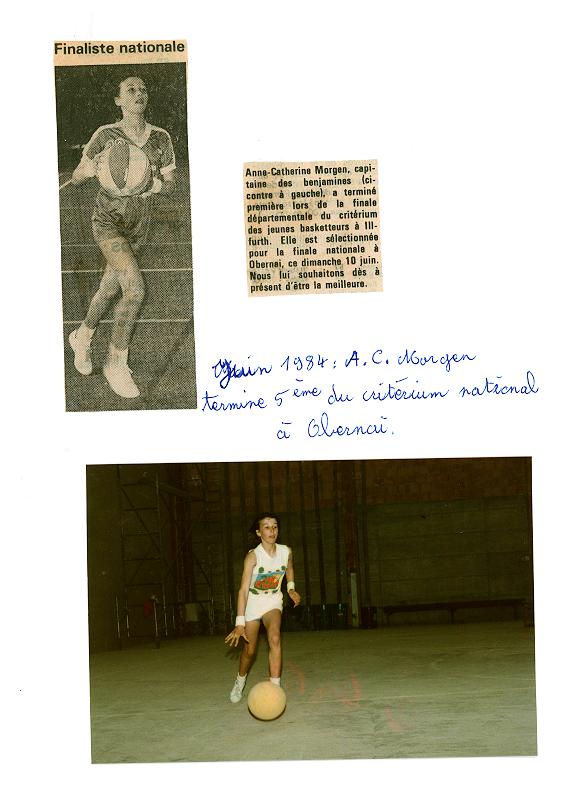 Finaliste nationale
Anne-Catherine Morgen, capi-
taine des benjamines (ci-
contre à gauche), a terminé
première lors de la finale
départementale du critérium
des jeunes basketteurs à Ill-
furth. Elle est sélectionnée
pour la finale nationale à
Obernai, ce dimanche 10 juin.
Nous lui souhaitons dès à
présent d'être la meilleure.
Juin 1984 : A.C. Morgen
termine 5ème du critérium national
à Obernai.